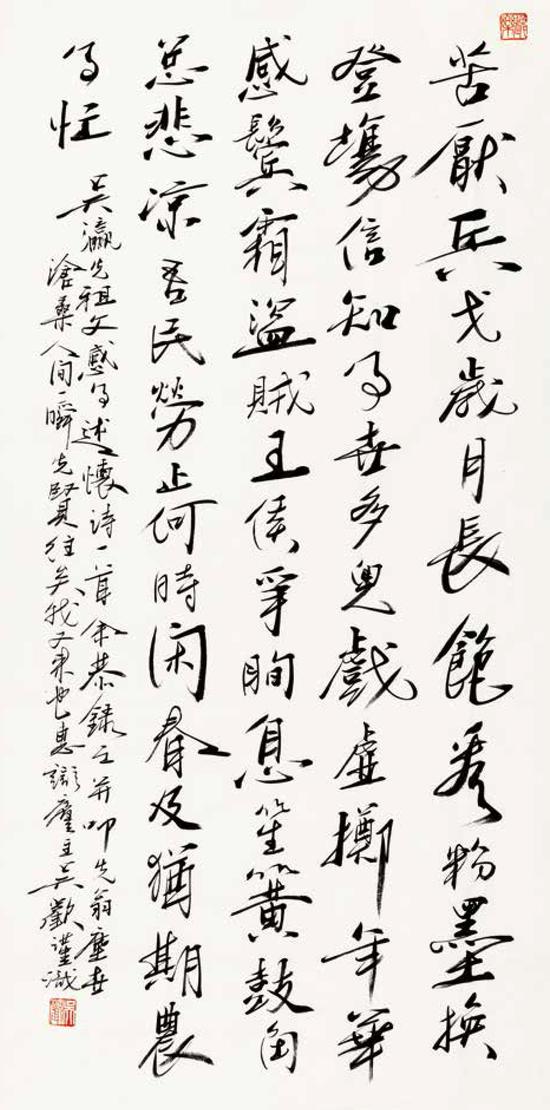 苦厭兵戈歲月長飽看粉墨換
登場信知事世多兒戲虛擲年華
感鬢霜盜賊王侯爭眴息笙簧鼓角
總悲涼吾民勞止何時閑春及猶期農
事忙
吳瀛先祖父感事述懷詩一首余恭錄之并叩先翁塵世
滄桑人間一瞬先賢往矣我又來也惠廬主吳歡謹識